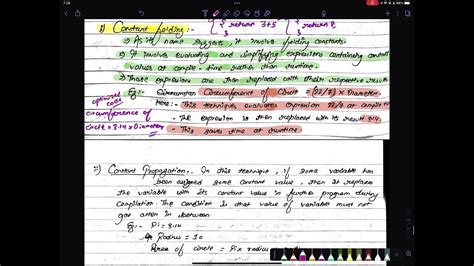 7:28
i) Constant folding :- { return 3+5 } { return 8; }
→ As its name suggests, it involves folding constants.
→ It involves evaluating and simplifying expressions containing constant
values at compile time rather than runtime.
→ Those expressions are then replaced with their respective result
Eg:- Circumference of Circle = (22/7) × Diameter
optimized code
Here:- This technique evaluates expression 22/7 at compile
circumference of - The expression is then replaced with its result 3.14
circle = 3.14 × Diameter - This saves time at runtime
ii) Constant Propagation. In this technique, if some variable has
been assigned some constant value, then it replaces
the variable with its constant value in further program during
compilation. The condition is that value of variable must not
get alter in between.
Eg:- Pi = 3.14
Radius = 10
Area of circle = Pi × radius